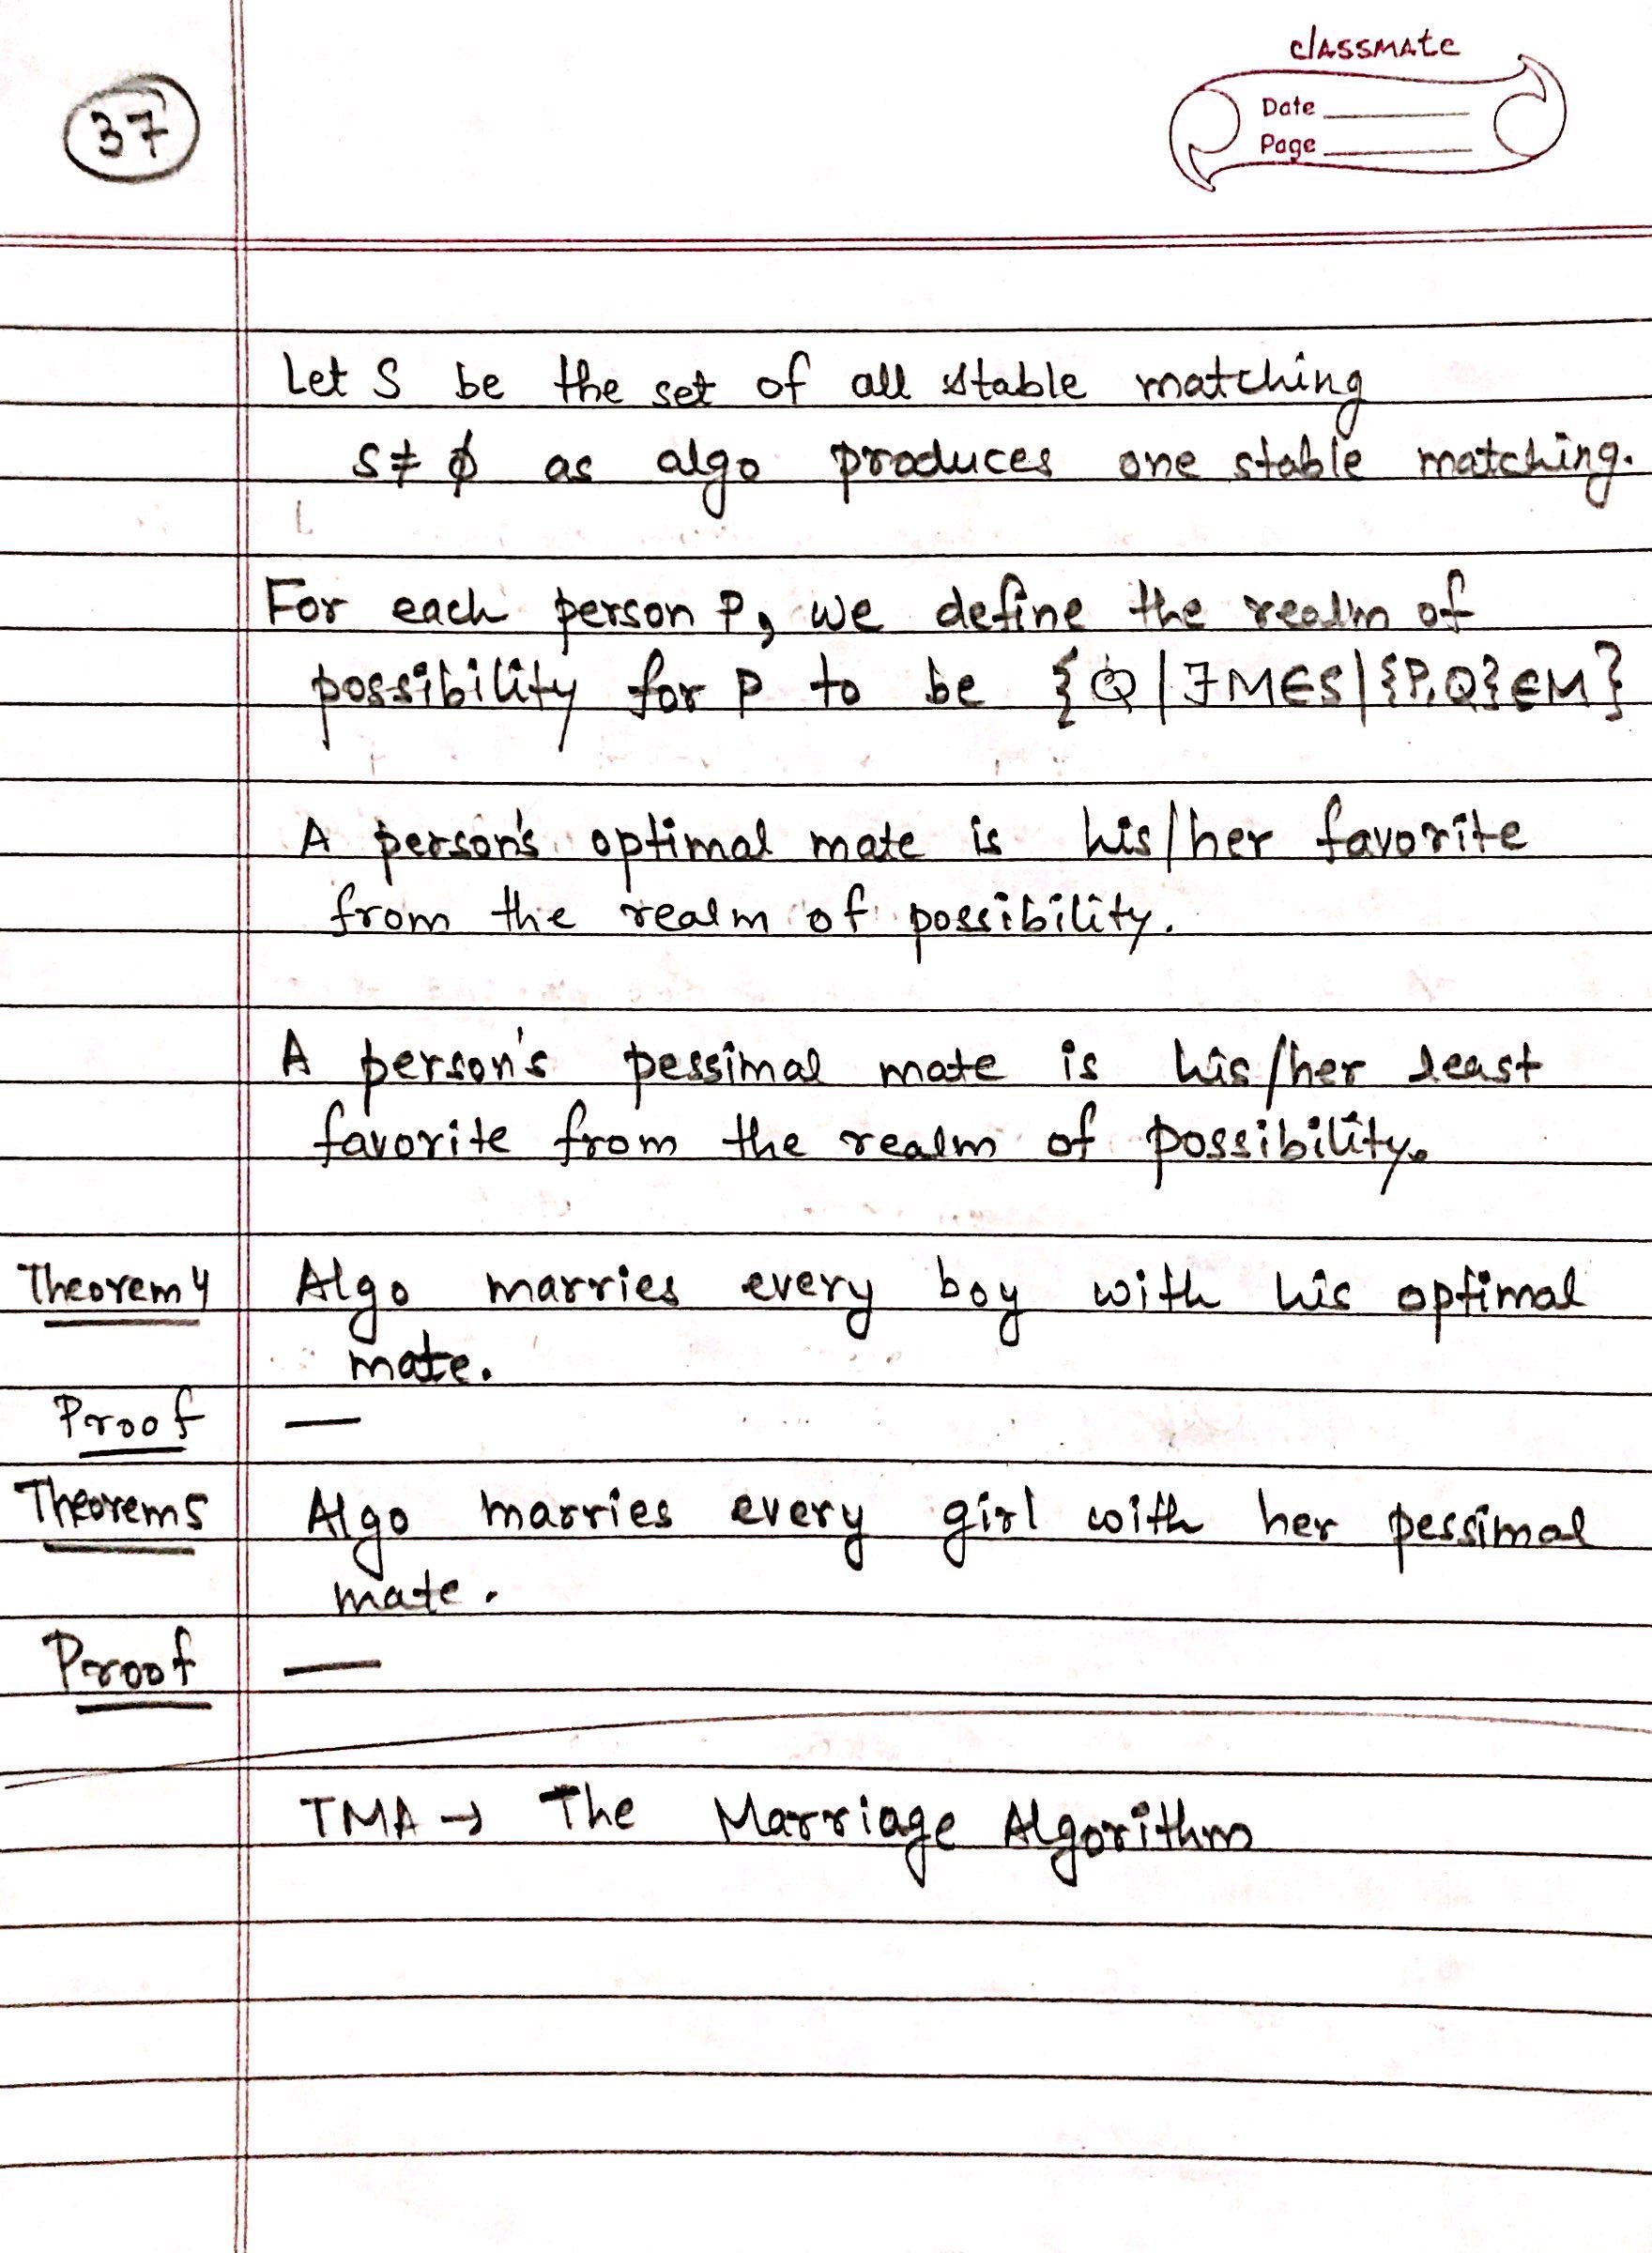 classmate
Date
Page
37
Let S be the set of all stable matching
S ≠ ϕ as algo produces one stable matching.
For each person P, we define the realm of
possibility for P to be {Q | ∃M∈S | {P,Q}∈M}
A person's optimal mate is his/her favorite
from the realm of possibility.
A person's pessimal mate is his/her least
favorite from the realm of possibility.
Theorem 4 Algo marries every boy with his optimal
mate.
Proof —
Theorem 5 Algo marries every girl with her pessimal
mate.
Proof —
TMA → The Marriage Algorithm